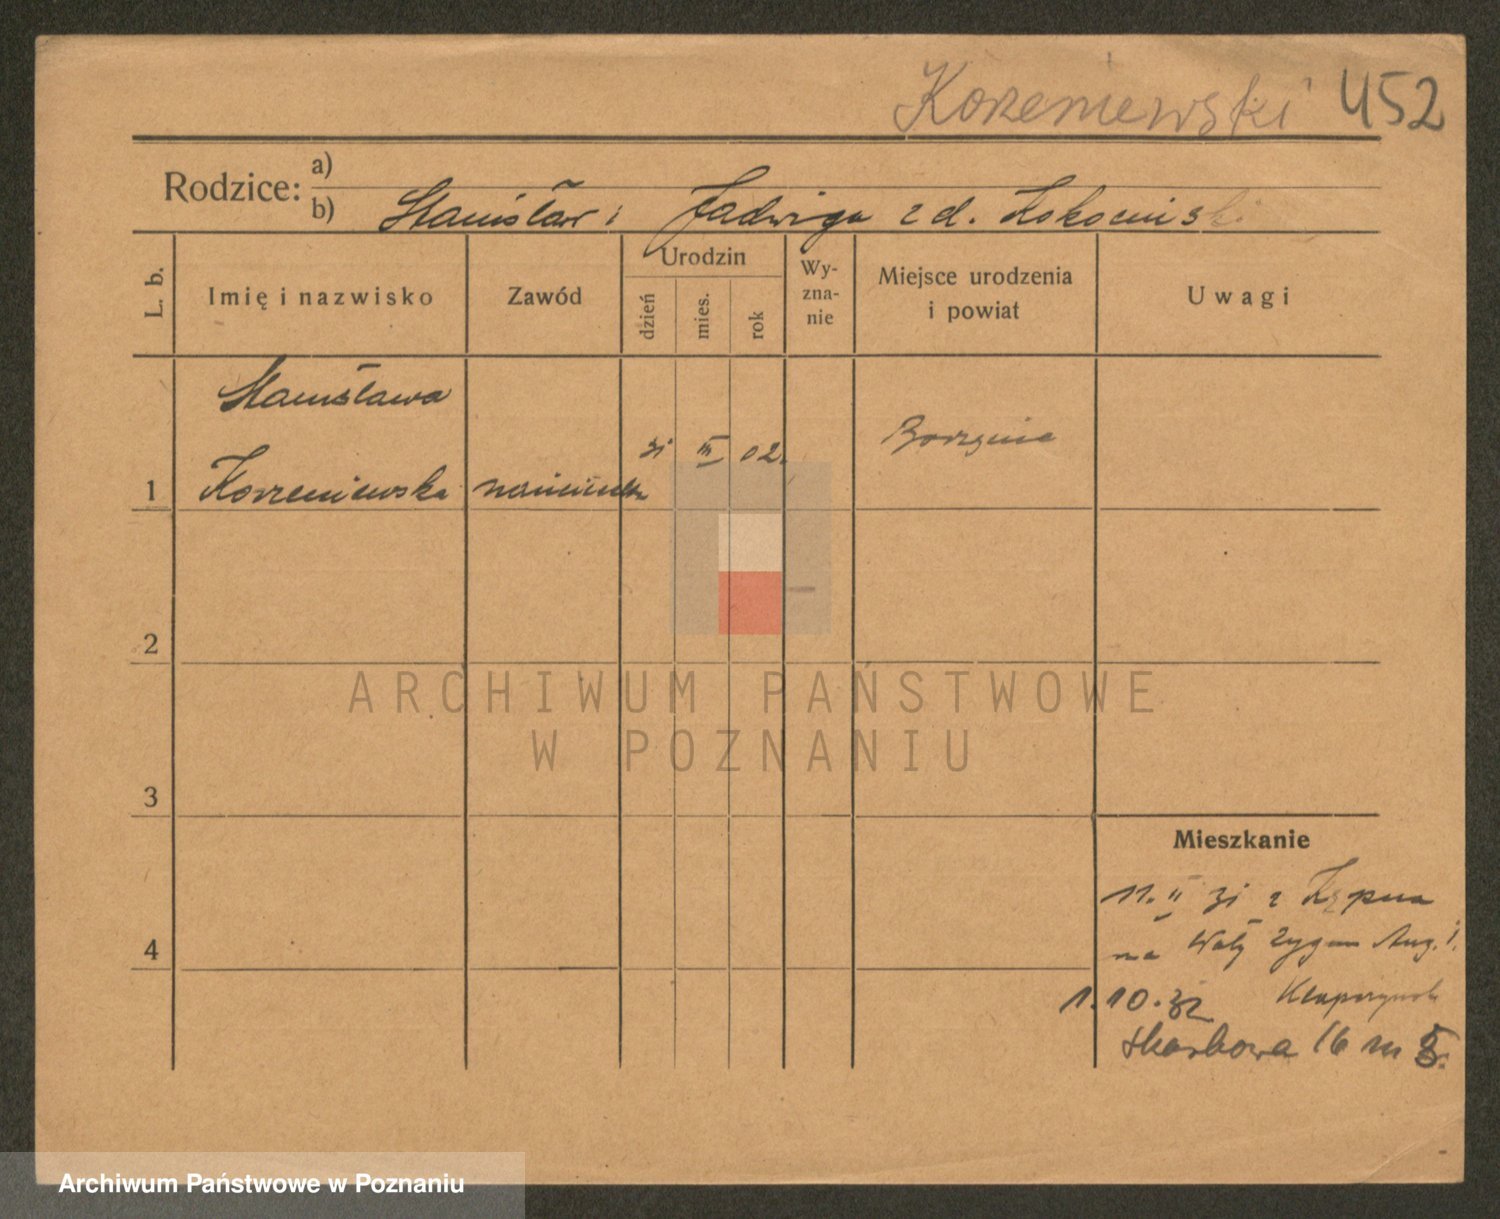 Korzeniewski 452
Rodzice: a)
b) Stanisław i Jadwiga z d. Kokocińskis
L. b.
Imię i nazwisko
Zawód
Urodzin
dzień
mies.
rok
Wy-
zna-
nie
Miejsce urodzenia
i powiat
Uwagi
Stanisława
1 Korzeniewska
31 III 02.
2
ARCHIWUM PAŃSTWOWE
W POZNANIU
3
Mieszkanie
11. II 31 z Kępna
na Wały Zygm Aug. 1.
4
1.10.32
Skarbowa 16 m 5.
Archiwum Państwowe w Poznaniu